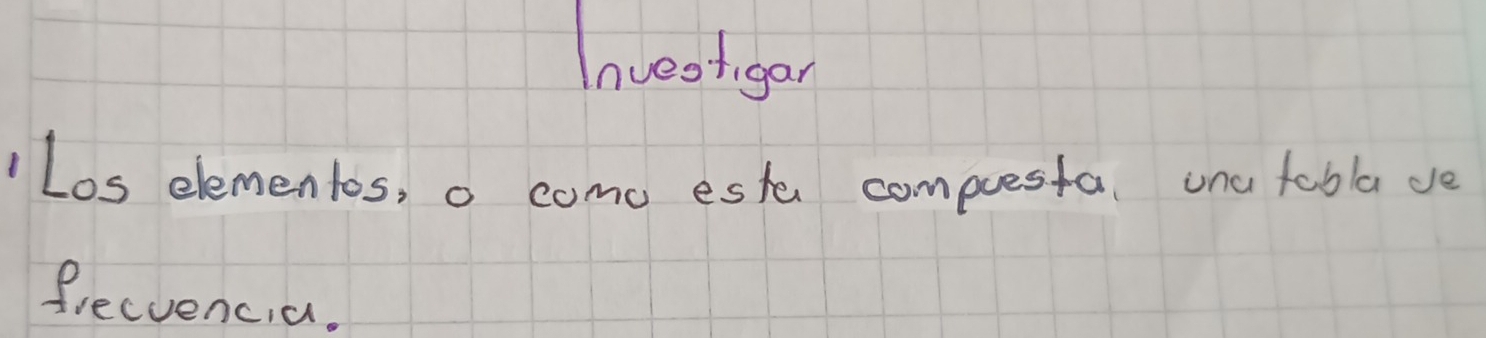 Investigar
' Los elementos, o como esta compuesta. una tabla de
frecuencia.